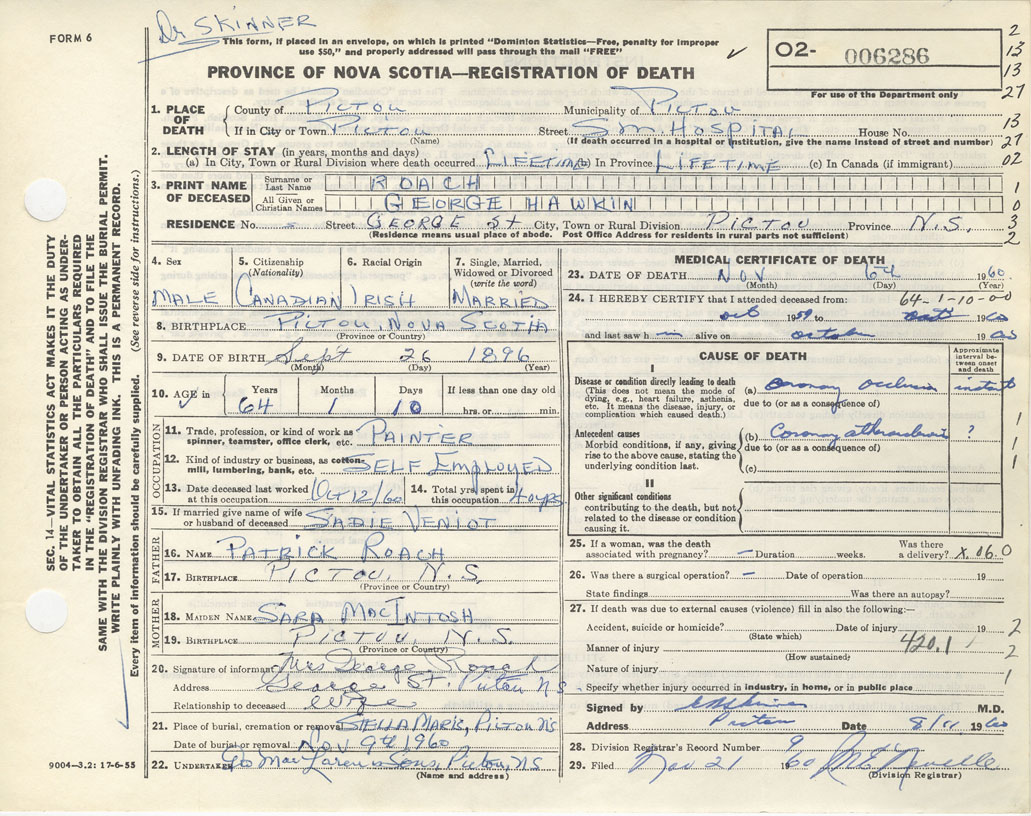 Dr SKINNER
FORM 6
This form, if placed in an envelope, on which is printed "Dominion Statistics—Free, penalty for improper
use $50," and properly addressed will pass through the mail "FREE"
PROVINCE OF NOVA SCOTIA—REGISTRATION OF DEATH
O2- 006286
For use of the Department only
2
13
13
27
13
27
02
1
0
3
2
1. PLACE OF DEATH
County of PICTOU Municipality of PICTOU
If in City or Town PICTOU Street S.M. HOSPITAL House No.
(Name) (If death occurred in a hospital or institution, give the name instead of street and number)
2. LENGTH OF STAY (in years, months and days)
(a) In City, Town or Rural Division where death occurred LIFETIME (b) In Province LIFETIME (c) In Canada (if immigrant)
3. PRINT NAME OF DECEASED
Surname or Last Name ROACH
All Given or Christian Names GEORGE HAWKIN
RESIDENCE No. - Street GEORGE St City, Town or Rural Division PICTOU Province N.S.
(Residence means usual place of abode. Post Office Address for residents in rural parts not sufficient)
4. Sex
MALE
5. Citizenship
(Nationality)
CANADIAN
6. Racial Origin
IRISH
7. Single, Married,
Widowed or Divorced
(write the word)
MARRIED
8. BIRTHPLACE PICTOU, NOVA SCOTIA
(Province or Country)
9. DATE OF BIRTH Sept 26 1896
(Month) (Day) (Year)
10. AGE in Years Months Days If less than one day old
64 1 10 hrs. or min.
OCCUPATION
11. Trade, profession or kind of work as
spinner, teamster, office clerk, etc. PAINTER
12. Kind of industry or business, as cotton-
mill, lumbering, bank, etc. SELF EMPLOYED
13. Date deceased last worked
at this occupation OCT 12/60
14. Total yrs. spent in
this occupation 40 yrs
15. If married give name of wife
or husband of deceased SADIE VENIOT
FATHER
16. NAME PATRICK ROACH
17. BIRTHPLACE PICTOU, N.S.
(Province or Country)
MOTHER
18. MAIDEN NAME SARA MACINTOSH
19. BIRTHPLACE PICTOU, N.S.
(Province or Country)
20. Signature of informant Mrs George Roach
Address George St. Pictou N S
Relationship to deceased wife
21. Place of burial, cremation or removal STELLA MARIS, PICTOU NS
Date of burial or removal Nov 9th 1960
22. UNDERTAKER MacLaren & Sons, Pictou, NS
(Name and address)
MEDICAL CERTIFICATE OF DEATH
23. DATE OF DEATH NOV 1960
(Month) (Day) (Year)
24. I HEREBY CERTIFY that I attended deceased from: 64-1-10-00
oct 1959 to 1960
and last saw h im alive on october 1960
CAUSE OF DEATH
Approximate interval between onset and death
I
Disease or condition directly leading to death
(This does not mean the mode of
dying, e.g., heart failure, asthenia,
etc. It means the disease, injury, or
complication which caused death.)
(a) coronary occlusion instant
due to (or as a consequence of)
Antecedent causes
Morbid conditions, if any, giving
rise to the above cause, stating the
underlying condition last.
(b) Coronary atherosclerosis ?
due to (or as a consequence of)
(c)
1
1
1
II
Other significant conditions
contributing to the death, but not
related to the disease or condition
causing it.
25. If a woman, was the death
associated with pregnancy? - Duration weeks. Was there
a delivery? X.06.0
26. Was there a surgical operation? - Date of operation 19
State findings Was there an autopsy?
27. If death was due to external causes (violence) fill in also the following:—
Accident, suicide or homicide? Date of injury 19 2
(State which)
Manner of injury 420.1 2
(How sustained)
Nature of injury 1
Specify whether injury occurred in industry, in home, or in public place
Signed by M.D.
Address Pictou Date 8/11 1960
28. Division Registrar's Record Number 9
29. Filed Nov 21 1960
(Division Registrar)
SEC. 14—VITAL STATISTICS ACT MAKES IT THE DUTY
OF THE UNDERTAKER OR PERSON ACTING AS UNDER-
TAKER TO OBTAIN ALL THE PARTICULARS REQUIRED
IN THE "REGISTRATION OF DEATH" AND TO FILE THE
SAME WITH THE DIVISION REGISTRAR WHO SHALL ISSUE THE BURIAL PERMIT.
WRITE PLAINLY WITH UNFADING INK. THIS IS A PERMANENT RECORD.
Every item of information should be carefully supplied. (See reverse side for instructions.)
9004—3.2: 17-6-55